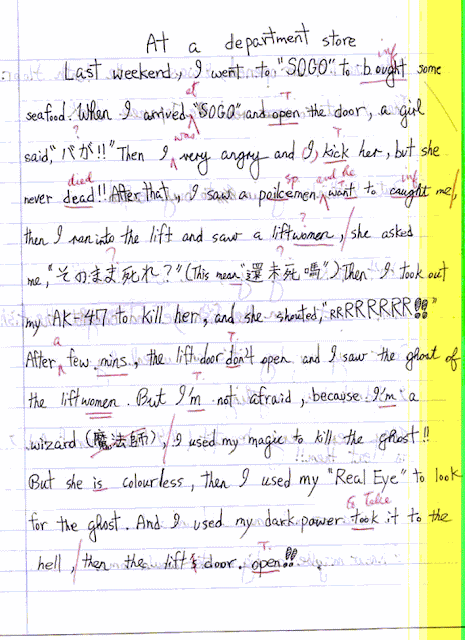 At a department store
Last weekend, I went to "SOGO" to bought some
inf
seafood. When I arrived "SOGO" and open the door, a girl
at T
said, "バガ!!" Then I very angry and I, kick her, but she
? was T
never dead!! After that, I saw a poilcemen want to caught me,
died sp and he inf
then I ran into the lift and saw a liftwomen, she asked
?
me, "そのまま死れ?" (This mean "還未死嗎") Then I took out
?
my AK-47 to kill her, and she shouted, "RRRRRRRR!!"
After few mins, the lift door don't open and I saw the ghost of
a T
the liftwomen. But I'm not afraid, because I'm a
T
wizard (魔法師), I used my magic to kill the ghost!!
But she is colourless, then I used my "Real Eye" to look
for the ghost. And I used my dark power took it to the
to take
hell, then the lift door. open!!
T